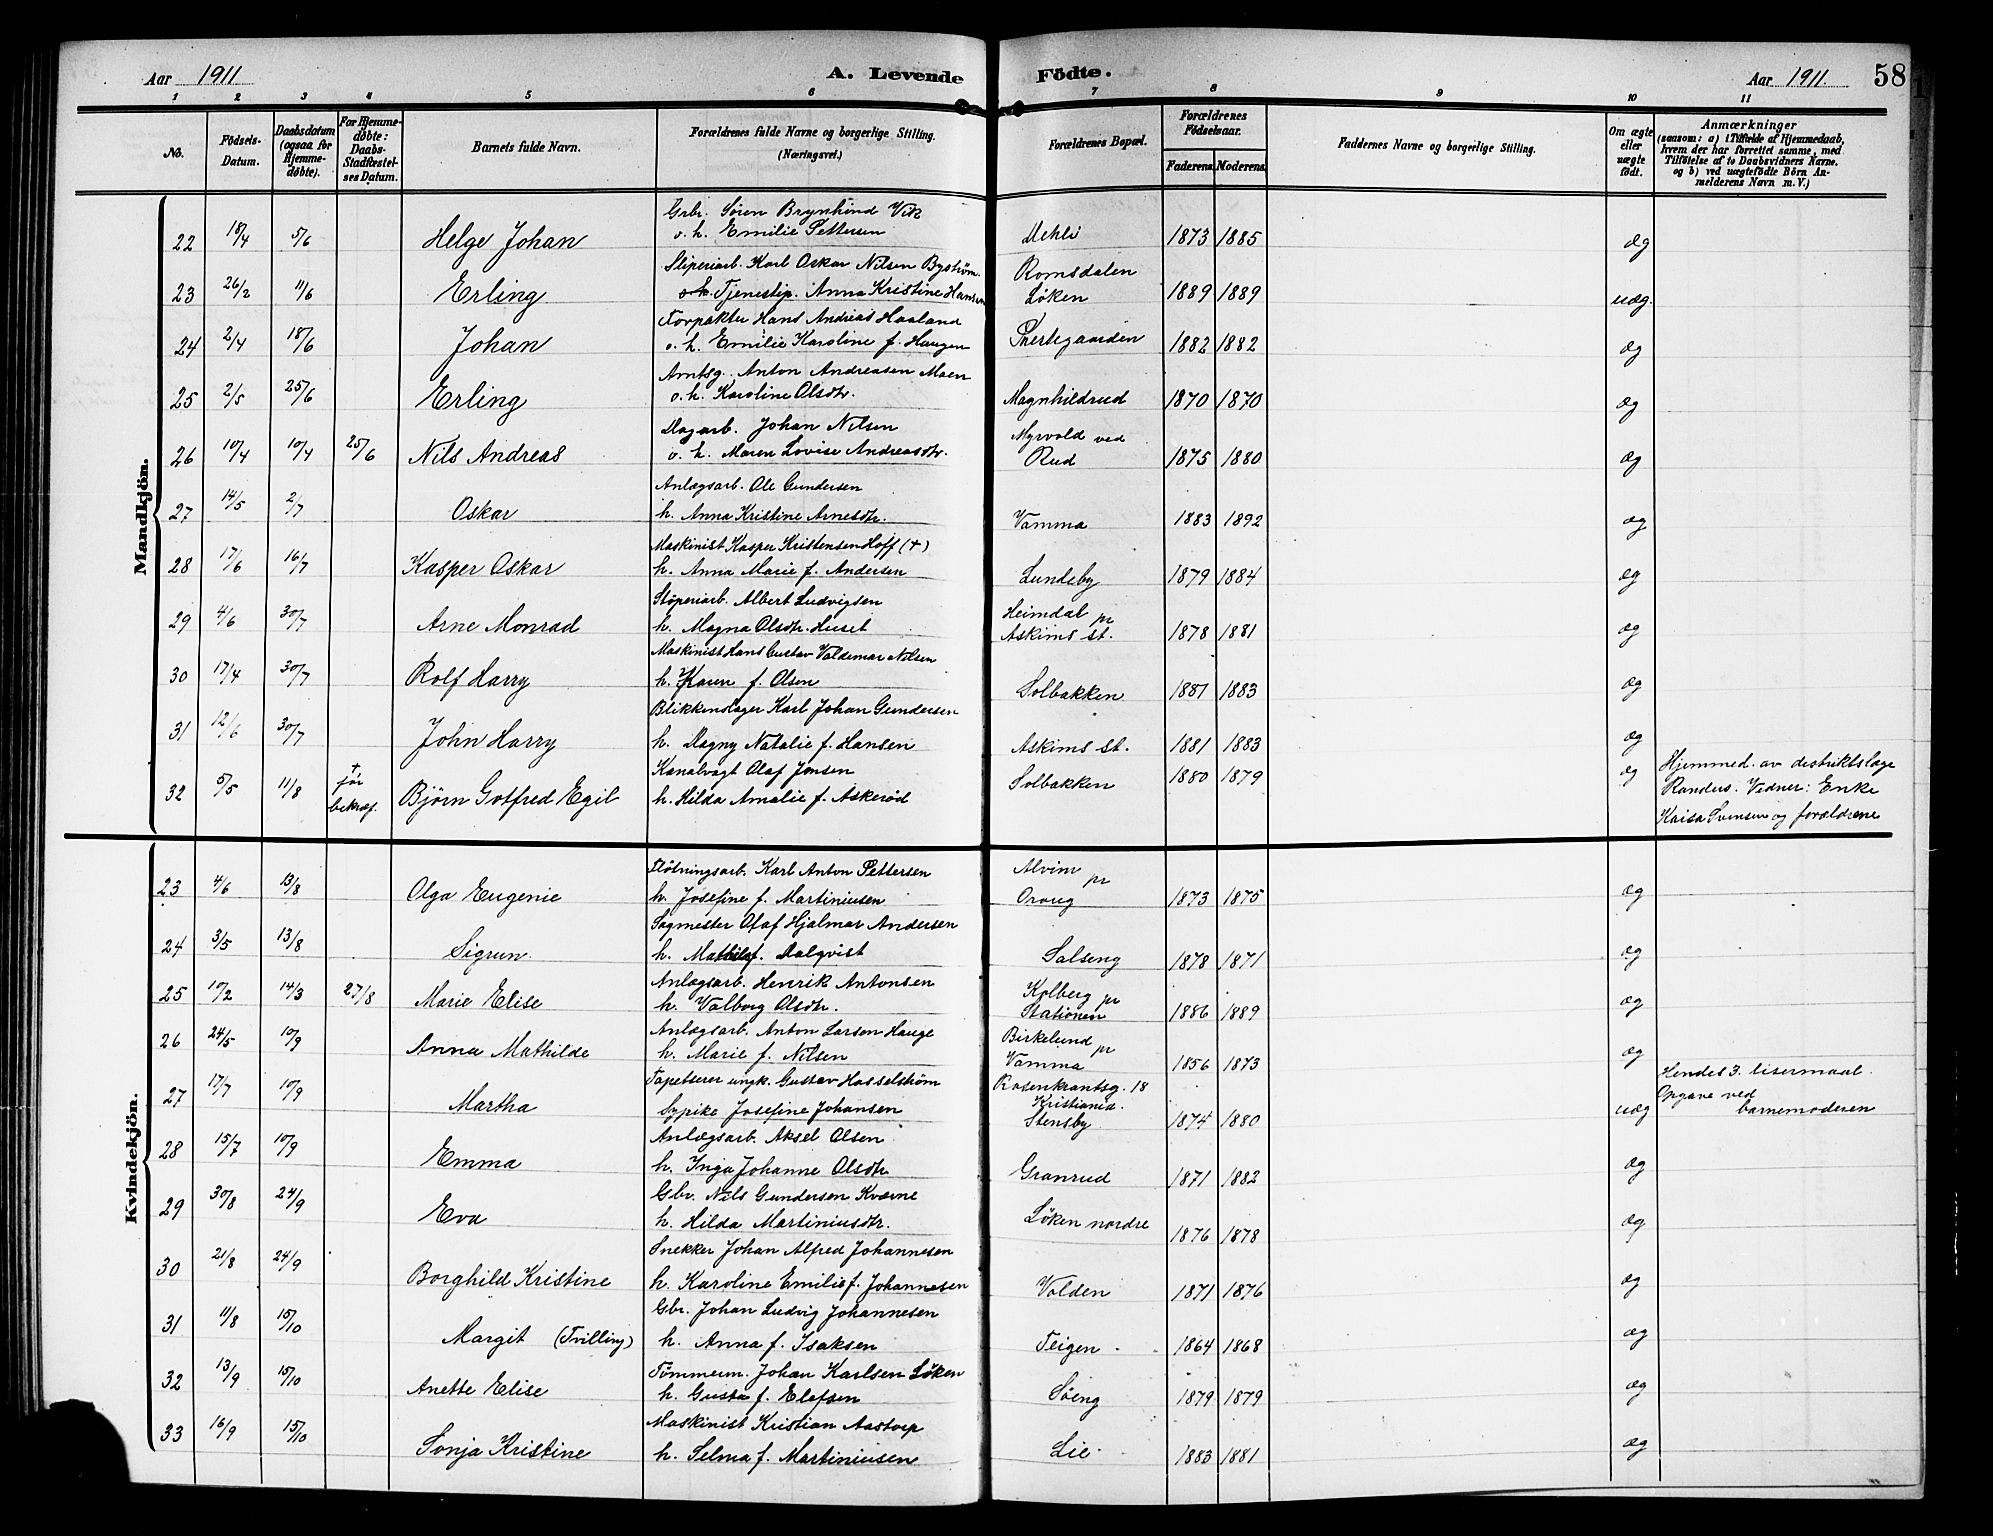 Aar 1911 A. Levende Födte. Aar 1911. 58
1 2 3 4 5 6 7 8 9 10 11
No. Födsels-Datum. Daabsdatum (ogsaa for Hjemmedöbte). For Hjemmedöbte: Daabs-Stadfæstelses Datum. Barnets fulde Navn. Forældrenes fulde Navne og borgerlige Stilling. (Næringsvei.) Forældrenes Bopæl. Forældrenes Födselsaar. Faderens. Moderens. Faddernes Navne og borgerlige Stilling. Om ægte eller uægte födt. Anmærkninger (saasom: a) i Tilfælde af Hjemmedaab, hvem der har forrettet samme, med Tilföielse af to Daabsvidners Navne. og b) ved uægtefödte Börn Anmelderens Navn m. V.)
Mandkjön.
Grbr. Søren Brynhind Vik
22 18/4 5/6 Helge Johan o. h. Emilie Pettersen 1873 1885 æg
Sliperiarb. Karl Oskar Nilsen Byström. Romsdalen
23 26/2 11/6 Erling Tjenestep. Anna Kristine Hansen Løken 1889 1889 uæg.
Forpakter Hans Andreas Haaland
24 2/4 18/6 Johan o. h. Emilie Karoline f. Haugen Prestegaarden 1882 1882 æg
Amtsg. Anton Andreasen Moen
25 2/5 25/6 Erling o. h. Karoline Olsdtr. Magnhildrud 1870 1870 æg
Dagarb. Johan Nilsen Myrvold ved
26 10/4 10/4 25/6 Nils Andreas o. h. Maren Lovise Andreasdtr. Rud 1875 1880 æg
Anlægsarb. Ole Gundersen
27 14/5 2/7 Oskar h. Anna Kristine Arnesdtr. Vamma 1883 1892 æg
Maskinist Kasper Kristensen Hoff (+)
28 17/6 16/7 Kasper Oskar h. Anna Marie f. Andersen Lundeby 1879 1884 æg
Støperiarb. Albert Ludvigsen Heimdal pr
29 4/6 30/7 Arne Monrad h. Magna Olsdtr. Huset Askims st. 1878 1881 æg
Maskinist Hans Gustav Valdemar Nilsen
30 17/4 30/7 Rolf Harry h. Karen f. Olsen Solbakken 1881 1883 æg
Blikkenslager Karl Johan Gundersen
31 12/6 30/7 John Harry h. Dagny Natalie f. Hansen Askims st. 1881 1883 æg
+ før Kanalvagt Olaf Jensen Solbakken 1880 1879 æg Hjemmed. av distriktslæge
32 5/5 11/8 bekræf. Björn Gotfred Egil h. Hilda Amalie f. Askerød Randers. Vidner: Enke
Kaisa Svensen og forældrene
Kvindekjön.
Fløtningsarb. Karl Anton Pettersen Alvim pr
23 4/6 13/8 Olga Eugenie h. Josefine f. Martiniusen Oraug 1873 1875 æg
Sagmester Olaf Hjalmar Andersen
24 3/5 13/8 Sigrun. h. Mathilde f. Dalqvist Salseng 1878 1871 æg
Anlægsarb. Henrik Antonsen Kolberg pr
25 10/2 14/3 27/8 Marie Elise h. Valborg Olsdtr. Stationen 1886 1889 æg
Anlægsarb. Anton Larsen Hauge Birkelund pr
26 24/5 10/9 Anna Mathilde h. Marie f. Nilsen Vamma 1856 1873 æg
Tapetserer ungk. Gustav Hasselström Rosenkrantsg. 18 Kristiania. Hendes 3. lisermaal.
27 17/7 10/9 Martha Sypike Josefine Johansen Stensby 1874 1880 uæg Opgave ved barnemoderen
Anlægsarb. Aksel Olsen
28 15/7 10/9 Emma h. Inga Johanne Olsdtr Granrud 1871 1882 æg
Gbr. Nils Gundersen Kværne
29 30/8 24/9 Eva h. Hilda Martiniusdtr. Løken nordre 1876 1878 æg
Snekker Johan Alfred Johannesen
30 21/8 24/9 Borghild Kristine h. Karoline Emilie f. Johannesen Volden 1871 1876 æg
Gbr. Johan Ludvig Johannesen
31 11/8 15/10 Margit (Tvilling) h. Anna f. Isaksen Teigen 1864 1868 æg
Tömmerm. Johan Karlsen Løken
32 13/9 15/10 Anette Elise h. Gusta f. Elefsen Søeng 1879 1879 æg
Maskinist Kristian Aastorp
33 16/9 15/10 Sonja Kristine h. Selma f. Martiniusen Lie 1883 1881 æg